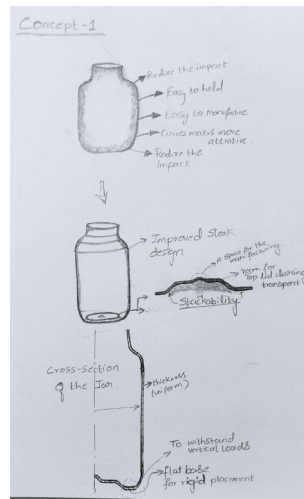 Concept -1
Reduce the impact
Easy to hold
Easy to
Curves makes more
attrative
Reduce the
impact
Improved sleek
design
a space for the
manufacturing
room for
top lid
transport
Stackability
Cross-section
of the Jar
thickness
(uniform)
To withstand
vertical loads
flat base
for rigid placement